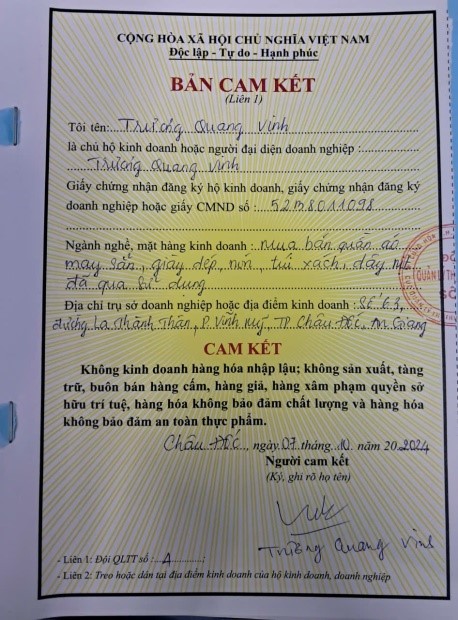 CỘNG HÒA XÃ HỘI CHỦ NGHĨA VIỆT NAM
Độc lập - Tự do - Hạnh phúc
BẢN CAM KẾT
(Liên 1)
Tôi tên: Trương Quang Vinh
là chủ hộ kinh doanh hoặc người đại diện doanh nghiệp :
Trương Quang Vinh
Giấy chứng nhận đăng ký hộ kinh doanh, giấy chứng nhận đăng ký
doanh nghiệp hoặc giấy CMND số : 52B8011098
Ngành nghề, mặt hàng kinh doanh : mua bán quần áo
may sẵn, giày dép, nón, túi xách, dây nịt
đã qua sử dụng
Địa chỉ trụ sở doanh nghiệp hoặc địa điểm kinh doanh : Số 63,
đường La Thành Thân, P. Vĩnh Mỹ, TP. Châu Đốc, An Giang
CAM KẾT
Không kinh doanh hàng hóa nhập lậu; không sản xuất, tàng
trữ, buôn bán hàng cấm, hàng giả, hàng xâm phạm quyền sở
hữu trí tuệ, hàng hóa không bảo đảm chất lượng và hàng hóa
không bảo đảm an toàn thực phẩm.
Châu Đốc, ngày 07 tháng 10 năm 2024
Người cam kết
(Ký, ghi rõ họ tên)
Trương Quang Vinh
- Liên 1: Đội QLTT số : 4 ;
- Liên 2: Treo hoặc dán tại địa điểm kinh doanh của hộ kinh doanh, doanh nghiệp